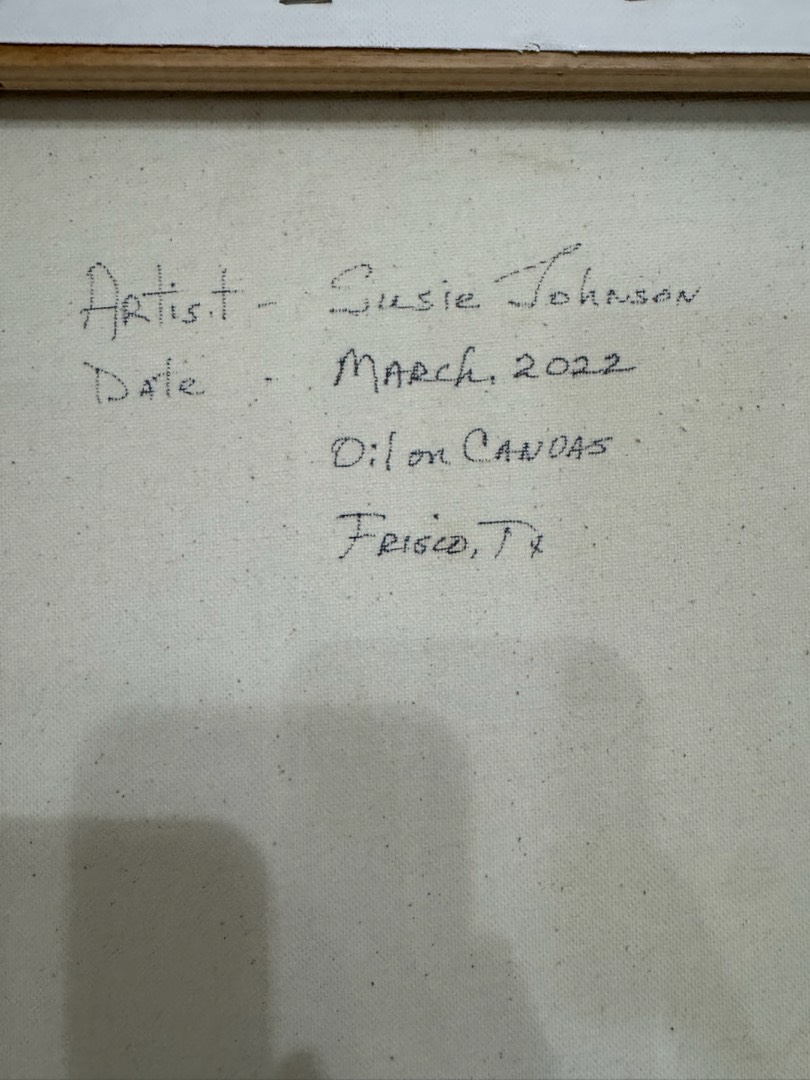 Artist - Susie Johnson
Date - March, 2022
Oil on Canvas
Frisco, Tx